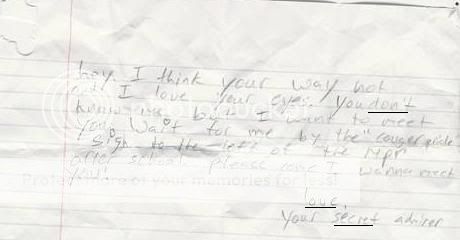 hey. I think your way hot
and I love your eyes. you don't
know me but I want to meet
you. wait for me by the "couger pride"
sign to the left of the MPR
after school please come I wanna meet
you!
love,
your secret admirer
Protect more of your memories for less!